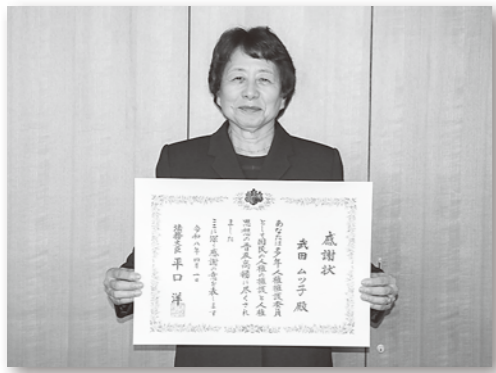 感謝状
武田 ムツ子 殿
あなたは多年人権擁護委員
として国民の人権の擁護と人権
思想の普及高揚に尽くされ
ました
ここに深く感謝の意を表します
令和八年四月一日
法務大臣 平口 洋